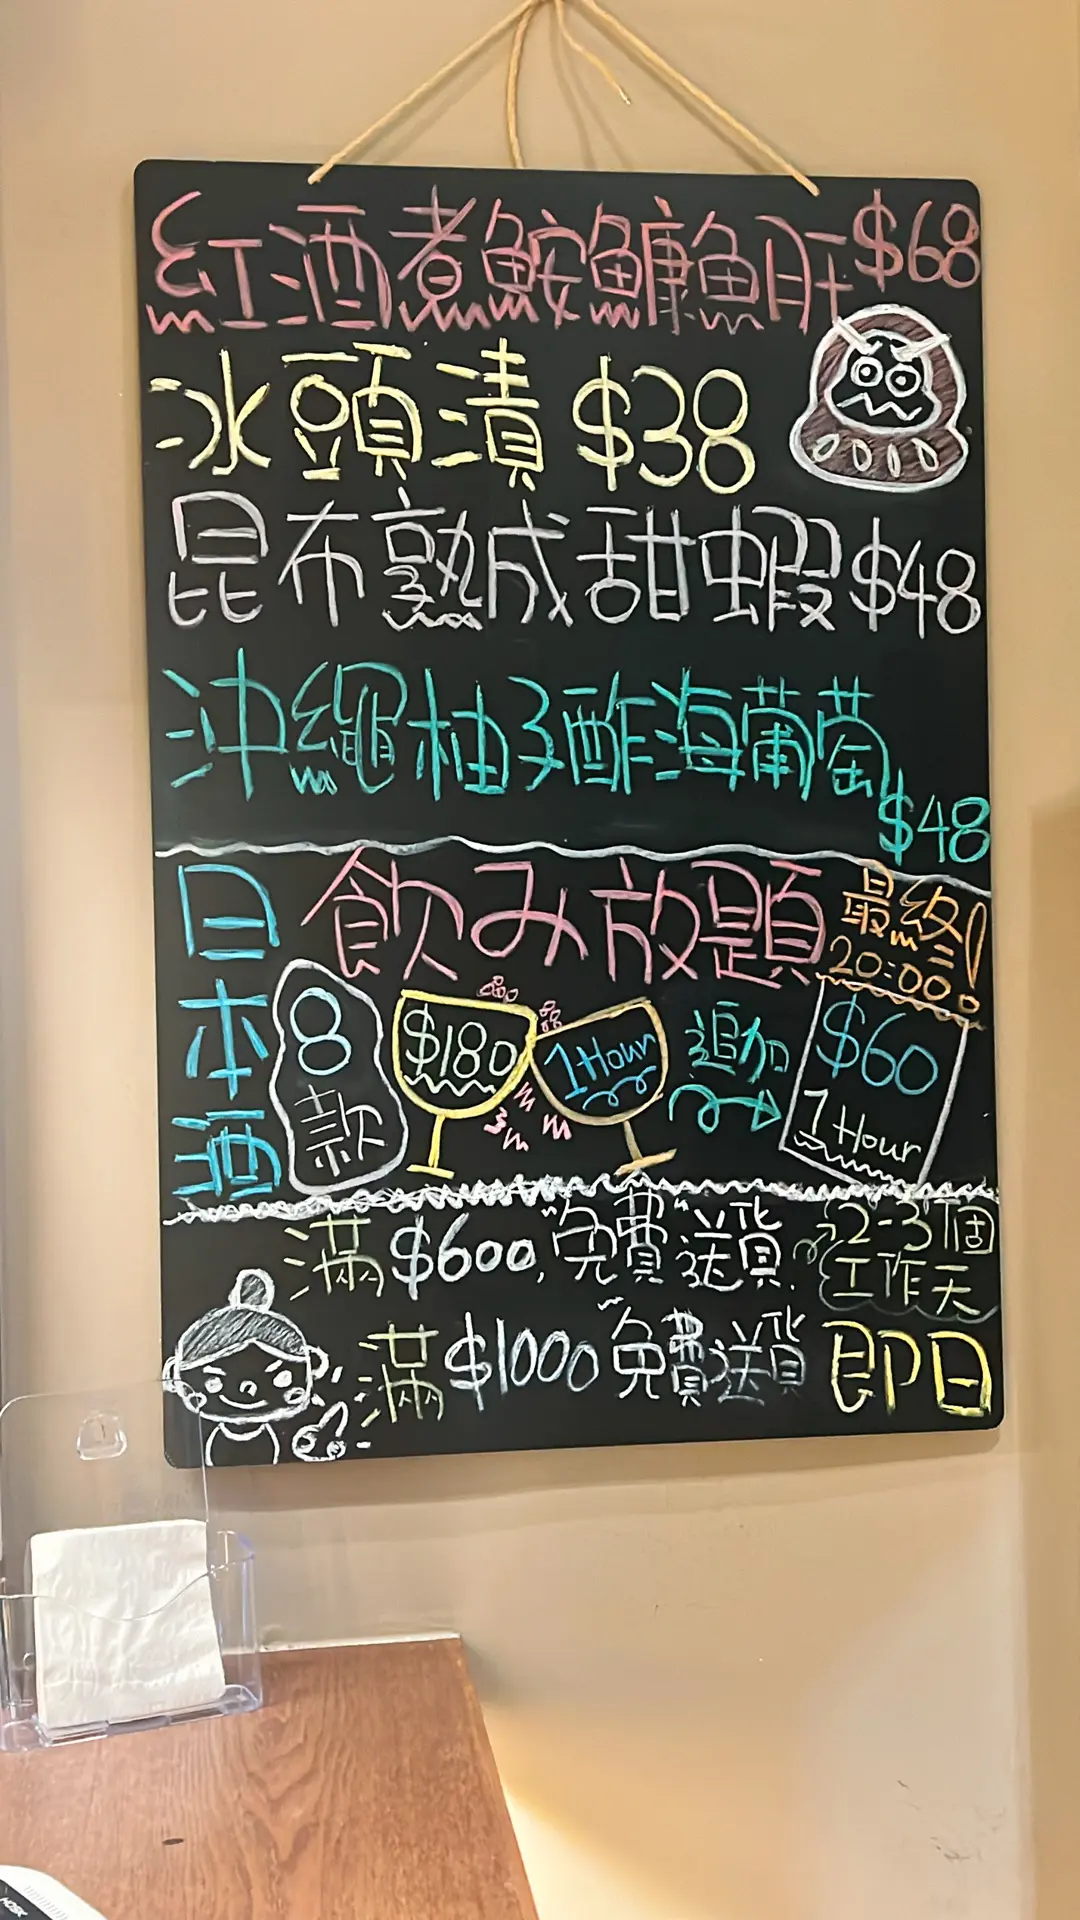 紅酒煮鮟鱇魚肝 $68
冰頭漬 $38
昆布熟成甜蝦 $48
沖繩柚子酢海葡萄
$48
日本酒
飲み放題
最終!
20:00
8款
$180
1 Hour
追加
$60
1 Hour
滿$600, 免費送貨
2-3個
工作天
滿$1000 免費送貨 即日